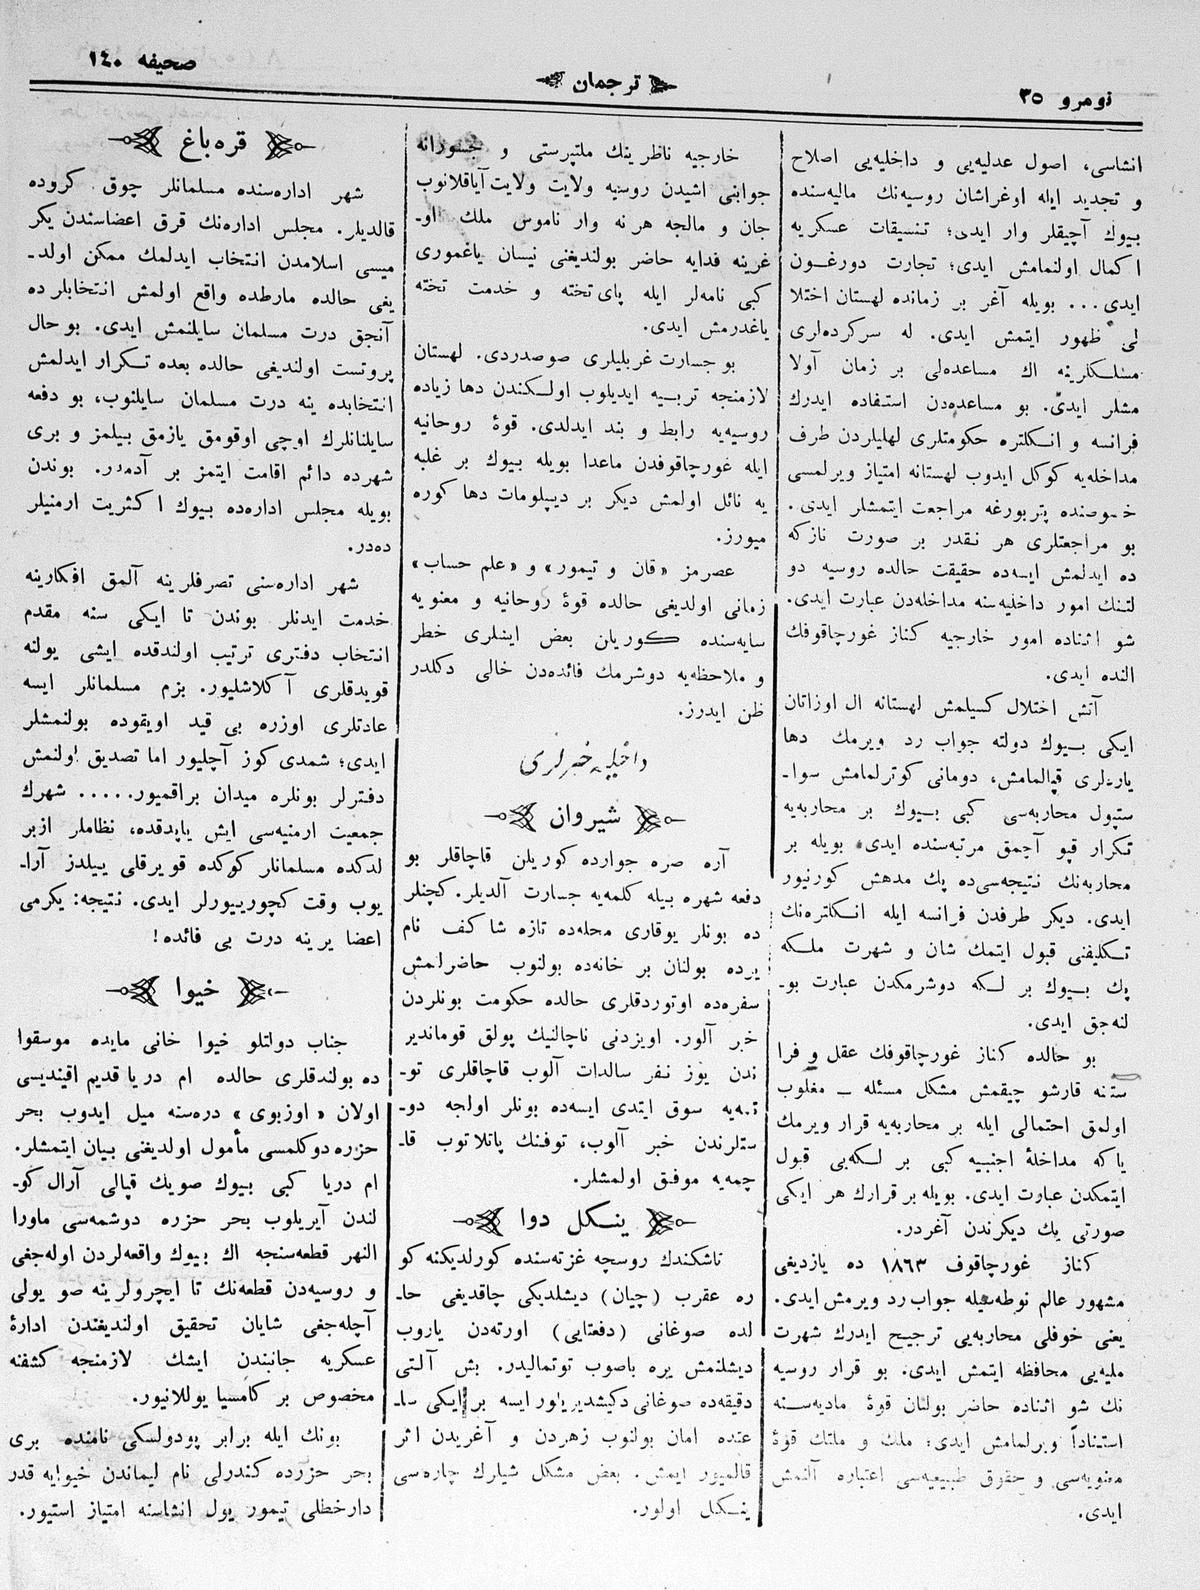 نومرو ٣٥
ترجمان
صحيفه ١٤٠
انشاسى، اصول عدليه‌يى و داخليه‌يى اصلاح
و تجديد ايله اوغراشان روسيه‌نك ماليه‌سنده
بيوك آچيقلر وار ايدى؛ تنسيقات عسكريه
اكمال اولنمامش ايدى؛ تجارت دورغون
ايدى... بويله آغر بر زمانده لهستان اختلا
لى ظهور ايتمش ايدى. له سركرده‌لرى
مسلكلرينه اك مساعده‌لى بر زمان آولا
مشلر ايدى. بو مساعده‌دن استفاده ايدرك
فرانسه و انكلتره حكومتلرى لهليلردن طرف
مداخله‌يه كوكل ايدوب لهستانه امتياز ويرلمسى
خصوصنده پتربورغه مراجعت ايتمشلر ايدى.
بو مراجعتلرى هر نقدر بر صورت نازكه
ده ايدلمش ايسه‌ده حقيقت حالده روسيه دو
لتنك امور داخليه‌سنه مداخله‌دن عبارت ايدى.
شو اثناده امور خارجيه كناز غورچاقوفك
النده ايدى.
آتش اختلال كسيلمش لهستانه ال اوزاتان
ايكى بيوك دولته جواب رد ويرمك دها
يارلرى قپالمامش، دومانى كوترلمامش سوا-
ستپول محاربه‌سى كبى بيوك بر محاربه‌يه
تكرار قپو آچمق مرتبه‌سنده ايدى. بويله بر
محاربه‌نك نتيجه‌سى‌ده پك مدهش كورنيور
ايدى. ديكر طرفدن فرانسه ايله انكلتره‌نك
تكليفنى قبول ايتمك شان و شهرت ملكه
پك بيوك بر لكه دوشرمكدن عبارت بو-
لنه‌جق ايدى.
بو حالده كناز غورچاقوفك عقل و فرا
ستنه قارشو چيقمش مشكل مسئله ــ مغلوب
اولمق احتمالى ايله بر محاربه‌يه قرار ويرمك
ياكه مداخلهٔ اجنبيه كبى بر لكه‌يى قبول
ايتمكدن عبارت ايدى. بويله بر قرارك هر ايكى
صورتى يك ديكرندن آغردر.
كناز غورچاقوف ١٨٦٣ ده يازديغى
مشهور عالم نوطه‌سيله جواب رد ويرمش ايدى.
يعنى خوفلى محاربه‌يى ترجيح ايدرك شهرت
مليه‌يى محافظه ايتمش ايدى. بو قرار روسيه
نك شو اثناده حاضر بولنان قوهٔ ماديه‌سنه
استناداً ويرلمامش ايدى؛ ملك و ملتك قوهٔ
معنويه‌سى و حقوق طبيعيه‌سى اعتباره آلنمش
ايدى.
خارجيه ناظرينك ملتپرستى و جسورانه
جوابنى اشيدن روسيه ولايت ولايت آياقلانوب
جان و مالجه هر نه وار ناموس ملك او-
غرينه فدايه حاضر بولنديغنى نيسان ياغمورى
كبى نامه‌لر ايله پاى تخته و خدمت تخته
ياغدرمش ايدى.
بو جسارت غربليلرى صوصدردى. لهستان
لازمنجه تربيه ايديلوب اولكندن دها زياده
روسيه‌يه رابط و بند ايدلدى. قوهٔ روحانيه
ايله غورچاقوفدن ماعدا بويله بيوك بر غلبه
يه نائل اولمش ديكر بر ديپلومات دها كوره
ميورز.
عصرمز «قان و تيمور» و «علم حساب»
زمانى اولديغى حالده قوهٔ روحانيه و معنويه
سايه‌سنده كوريلن بعض ايشلرى خطر
و ملاحظه‌يه دوشرمك فائده‌دن خالى دكلدر
ظن ايدرز.
داخليه خبرلرى
شيروان
آره صره جوارده كوريلن قاچاقلر بو
دفعه شهره بيله كلمه‌يه جسارت آلديلر. كچنلر
ده بونلر يوقارى محله‌ده تازه شاكف نام
يرده بولنان بر خانه‌ده بولنوب حاضرلمش
سفره‌ده اوتوردقلرى حالده حكومت بونلردن
خبر آلور. اويزدنى ناچالنيك پولق قومانديرِ
ندن يوز نفر سالدات آلوب قاچاقلرى تو-
تمه‌يه سوق ايتدى ايسه‌ده بونلر اولجه دو-
ستلرندن خبر آلوب، توفنك پاتلاتوب قا-
چمه‌يه موفق اولمشلر.
ينكل دوا
تاشكندك روسچه غزته‌سنده كورلديكنه كو
ره عقرب (چيان) ديشلديكى چاقديغى حا-
لده صوغانى (دفعتايى) اورته‌دن ياروب
ديشلنمش يره باصوب توتماليدر. بش آلتى
دقيقه‌ده صوغانى دكيشديريلور ايسه بر ايكى سا-
عتده امان بولنوب زهردن و آغريدن اثر
قالميور ايمش. بعض مشكل شيلرك چاره‌سى
ينكل اولور.
قره باغ
شهر اداره‌سنده مسلمانلر چوق كروده
قالديلر. مجلس اداره‌نك قرق اعضاسندن يكر
ميسى اسلامدن انتخاب ايدلمك ممكن اولد-
يغى حالده مارطده واقع اولمش انتخابلرده
آنجق درت مسلمان سايلنمش ايدى. بو حال
پروتست اولنديغى حالده بعده تكرار ايدلمش
انتخابده ينه درت مسلمان سايلنوب، بو دفعه
سايلنانلرك اوچى اوقومق يازمق بيلمز و برى
شهرده دائم اقامت ايتمز بر آدمدر. بوندن
بويله مجلس اداره‌ده بيوك اكثريت ارمنيلر
ده‌در.
شهر اداره‌سنى تصرفلرينه آلمق افكارينه
خدمت ايدنلر بوندن تا ايكى سنه مقدم
انتخاب دفترى ترتيب اولندقده ايشى يولنه
قويدقلرى آكلاشليور. بزم مسلمانلر ايسه
عادتلرى اوزره بى قيد اويقوده بولنمشلر
ايدى؛ شمدى كوز آچليور اما تصديق اولنمش
دفترلر بونلره ميدان براقميور..... شهرك
جمعيت ارمنيه‌سى ايش ياپدقده، نظاملر ازبر
لدكده مسلمانلر كوكده قويرقلى ييلدز آرا-
يوب وقت كچورييورلر ايدى. نتيجه: يكرمى
اعضا يرينه درت بى فائده!
خيوا
جناب دولتلو خيوا خانى مايده موسقوا
ده بولندقلرى حالده ام دريا قديم اقينديسى
اولان «اوزبوى» دره‌سنه ميل ايدوب بحر
حزره دوكلمسى مأمول اولديغنى بيان ايتمشلر.
ام دريا كبى بيوك صويك قپالى آرال كو-
لندن آيريلوب بحر حزره دوشمه‌سى ماورا
النهر قطعه‌سنجه اك بيوك واقعه‌لردن اوله‌جغى
و روسيه‌دن قطعه‌نك تا ايچرولرينه صو يولى
آچله‌جغى شايان تحقيق اولنديغندن ادارهٔ
عسكريه جانبندن ايشك لازمنجه كشفنه
مخصوص بر كامسيا يوللانيور.
بونك ايله برابر پودولسكى نامنده برى
بحر حزرده كندرلى نام ليماندن خيوايه قدر
دارخطلى تيمور يول انشاسنه امتياز استيور.